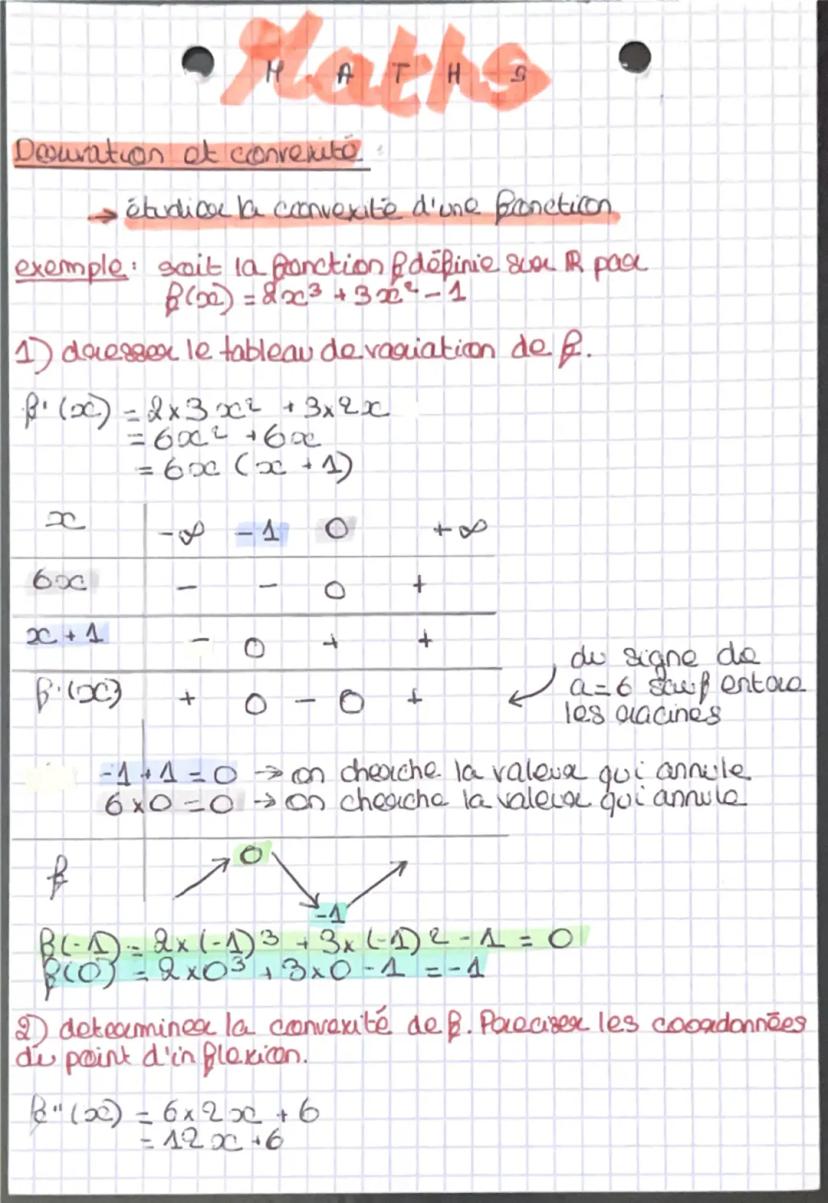 Maths
M A T H S
Dérivation et convexité
→ étudier la convexité d'une fonction
exemple: soit la fonction f définie sur R par
f(x) = 2x³ + 3x² - 1
1) dresser le tableau de variation de f.
f'(x) = 2x3x² + 3x2x
= 6x² + 6x
= 6x (x + 1)
x -∞ -1 0 +∞
6x - - 0 +
x + 1 - 0 + +
f'(x) + 0 - 0 +
du signe de
a=6 sauf entre
les racines
-1+1=0 → on cherche la valeur qui annule
6x0=0 → on cherche la valeur qui annule
f 0
-1
f(-1) = 2x(-1)³ + 3x(-1)² - 1 = 0
f(0) = 2x0³ + 3x0 - 1 = -1
2) determiner la convexité de f. Preciser les coordonnées
du point d'inflexion.
f''(x) = 6x2x + 6
= 12x + 6